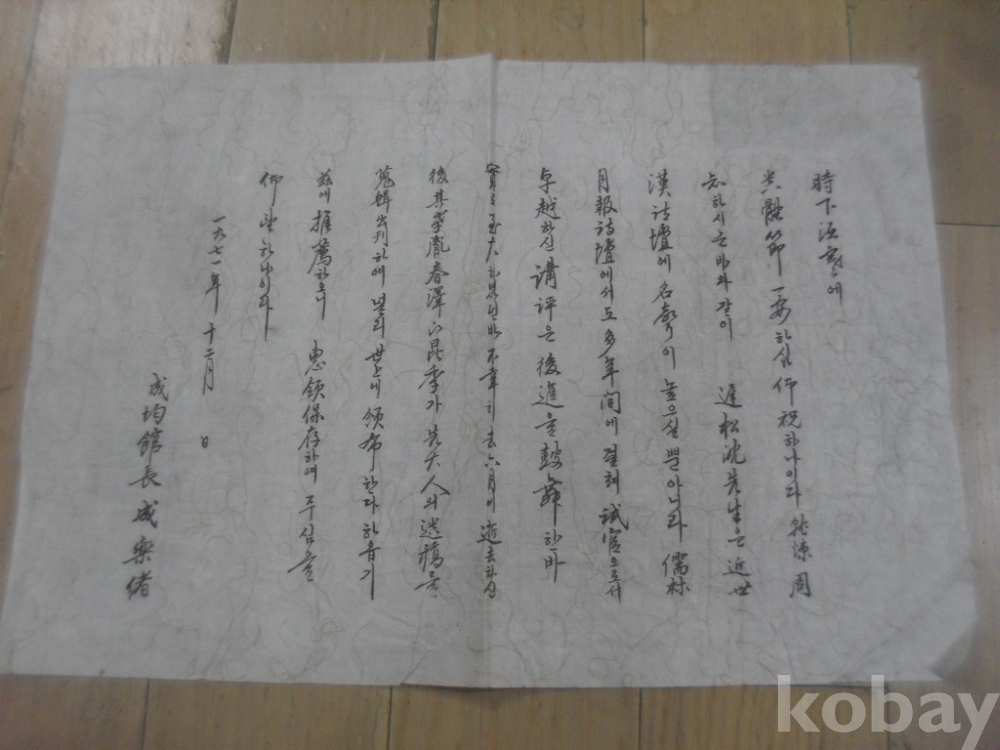 時下沍寒에
尊體節 一安하심 仰祝하나이다 就悚 周
知하시는바와같이 遲松沈先生은 近世
漢詩壇에 名聲이 높으실뿐아니라 儒林
月報詩壇에서도 多年間에 걸쳐 試官으로서
卓越하신 講評은 後進을 鼓舞한바
實로至大하였던바 不幸히去六月에 逝去하심
後 其 胤春澤 昆季가 先大人의 遺稿를
蒐輯出刊하여 널리 世上에 頒布한다 하옵기
玆에 推薦하오니 惠領保存하여 주심을
仰望하나이다
一九七一年 十二月 日
成均館長 成樂緖
kobay